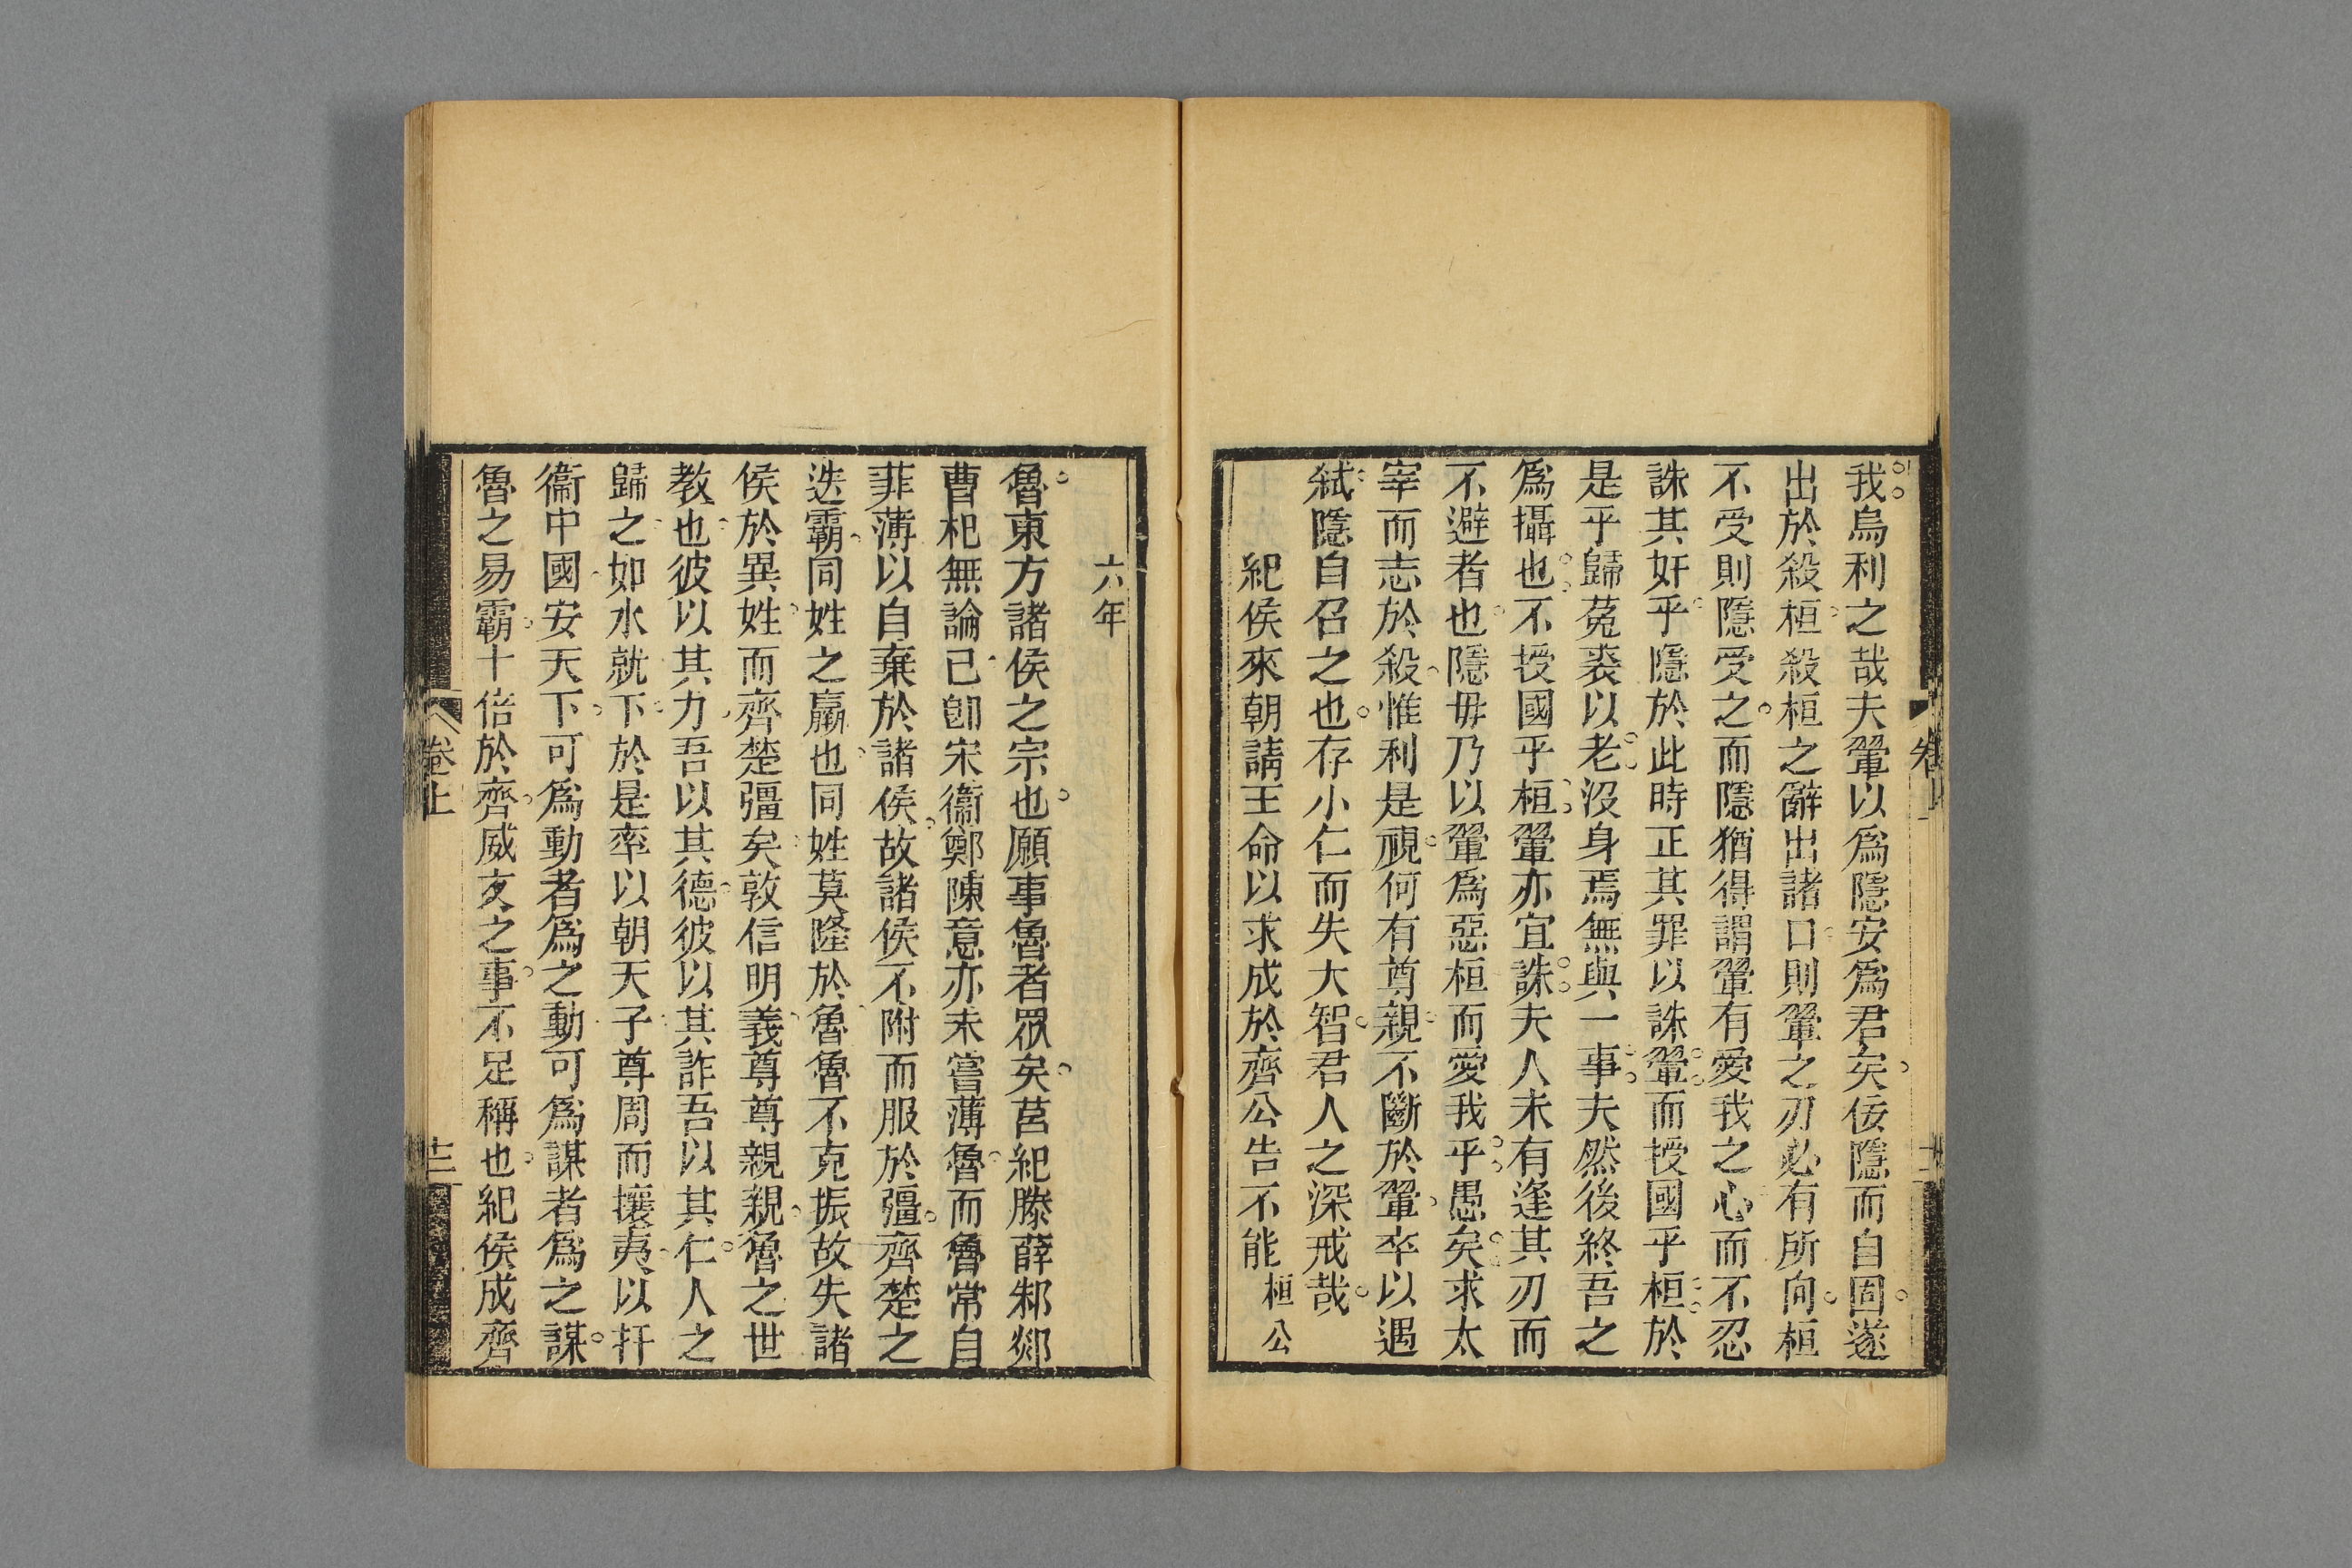 我烏利之哉夫翬以爲隱安爲君矣佞隱而自固遂
出於殺桓殺桓之辭出諸口則翬之刃必有所向桓
不受則隱受之而隱猶得謂翬有愛我之心而不忍
誅其奸乎隱於此時正其罪以誅翬而授國乎桓於
是乎歸菟裘以老沒身焉無與一事夫然後終吾之
爲攝也不授國乎桓翬亦宜誅夫人未有逢其刃而
不避者也隱毋乃以翬爲惡桓而愛我乎愚矣求太
宰而志於殺惟利是視何有尊親不斷於翬卒以遇
弑隱自召之也存小仁而失大智君人之深戒哉
紀侯來朝請王命以求成於齊公告不能桓公
六年
魯東方諸侯之宗也願事魯者眾矣莒紀滕薛邾郯
曹杞無論已卽宋衞鄭陳意亦未嘗薄魯而魯常自
菲薄以自棄於諸侯故諸侯不附而服於彊齊楚之
迭霸同姓之羸也同姓莫隆於魯魯不克振故失諸
侯於異姓而齊楚彊矣敦信明義尊尊親親魯之世
教也彼以其力吾以其德彼以其詐吾以其仁人之
歸之如水就下於是率以朝天子尊周而攘夷以扞
衞中國安天下可爲動者爲之動可爲謀者爲之謀
魯之易霸十倍於齊威文之事不足稱也紀侯成齊
卷上
十二